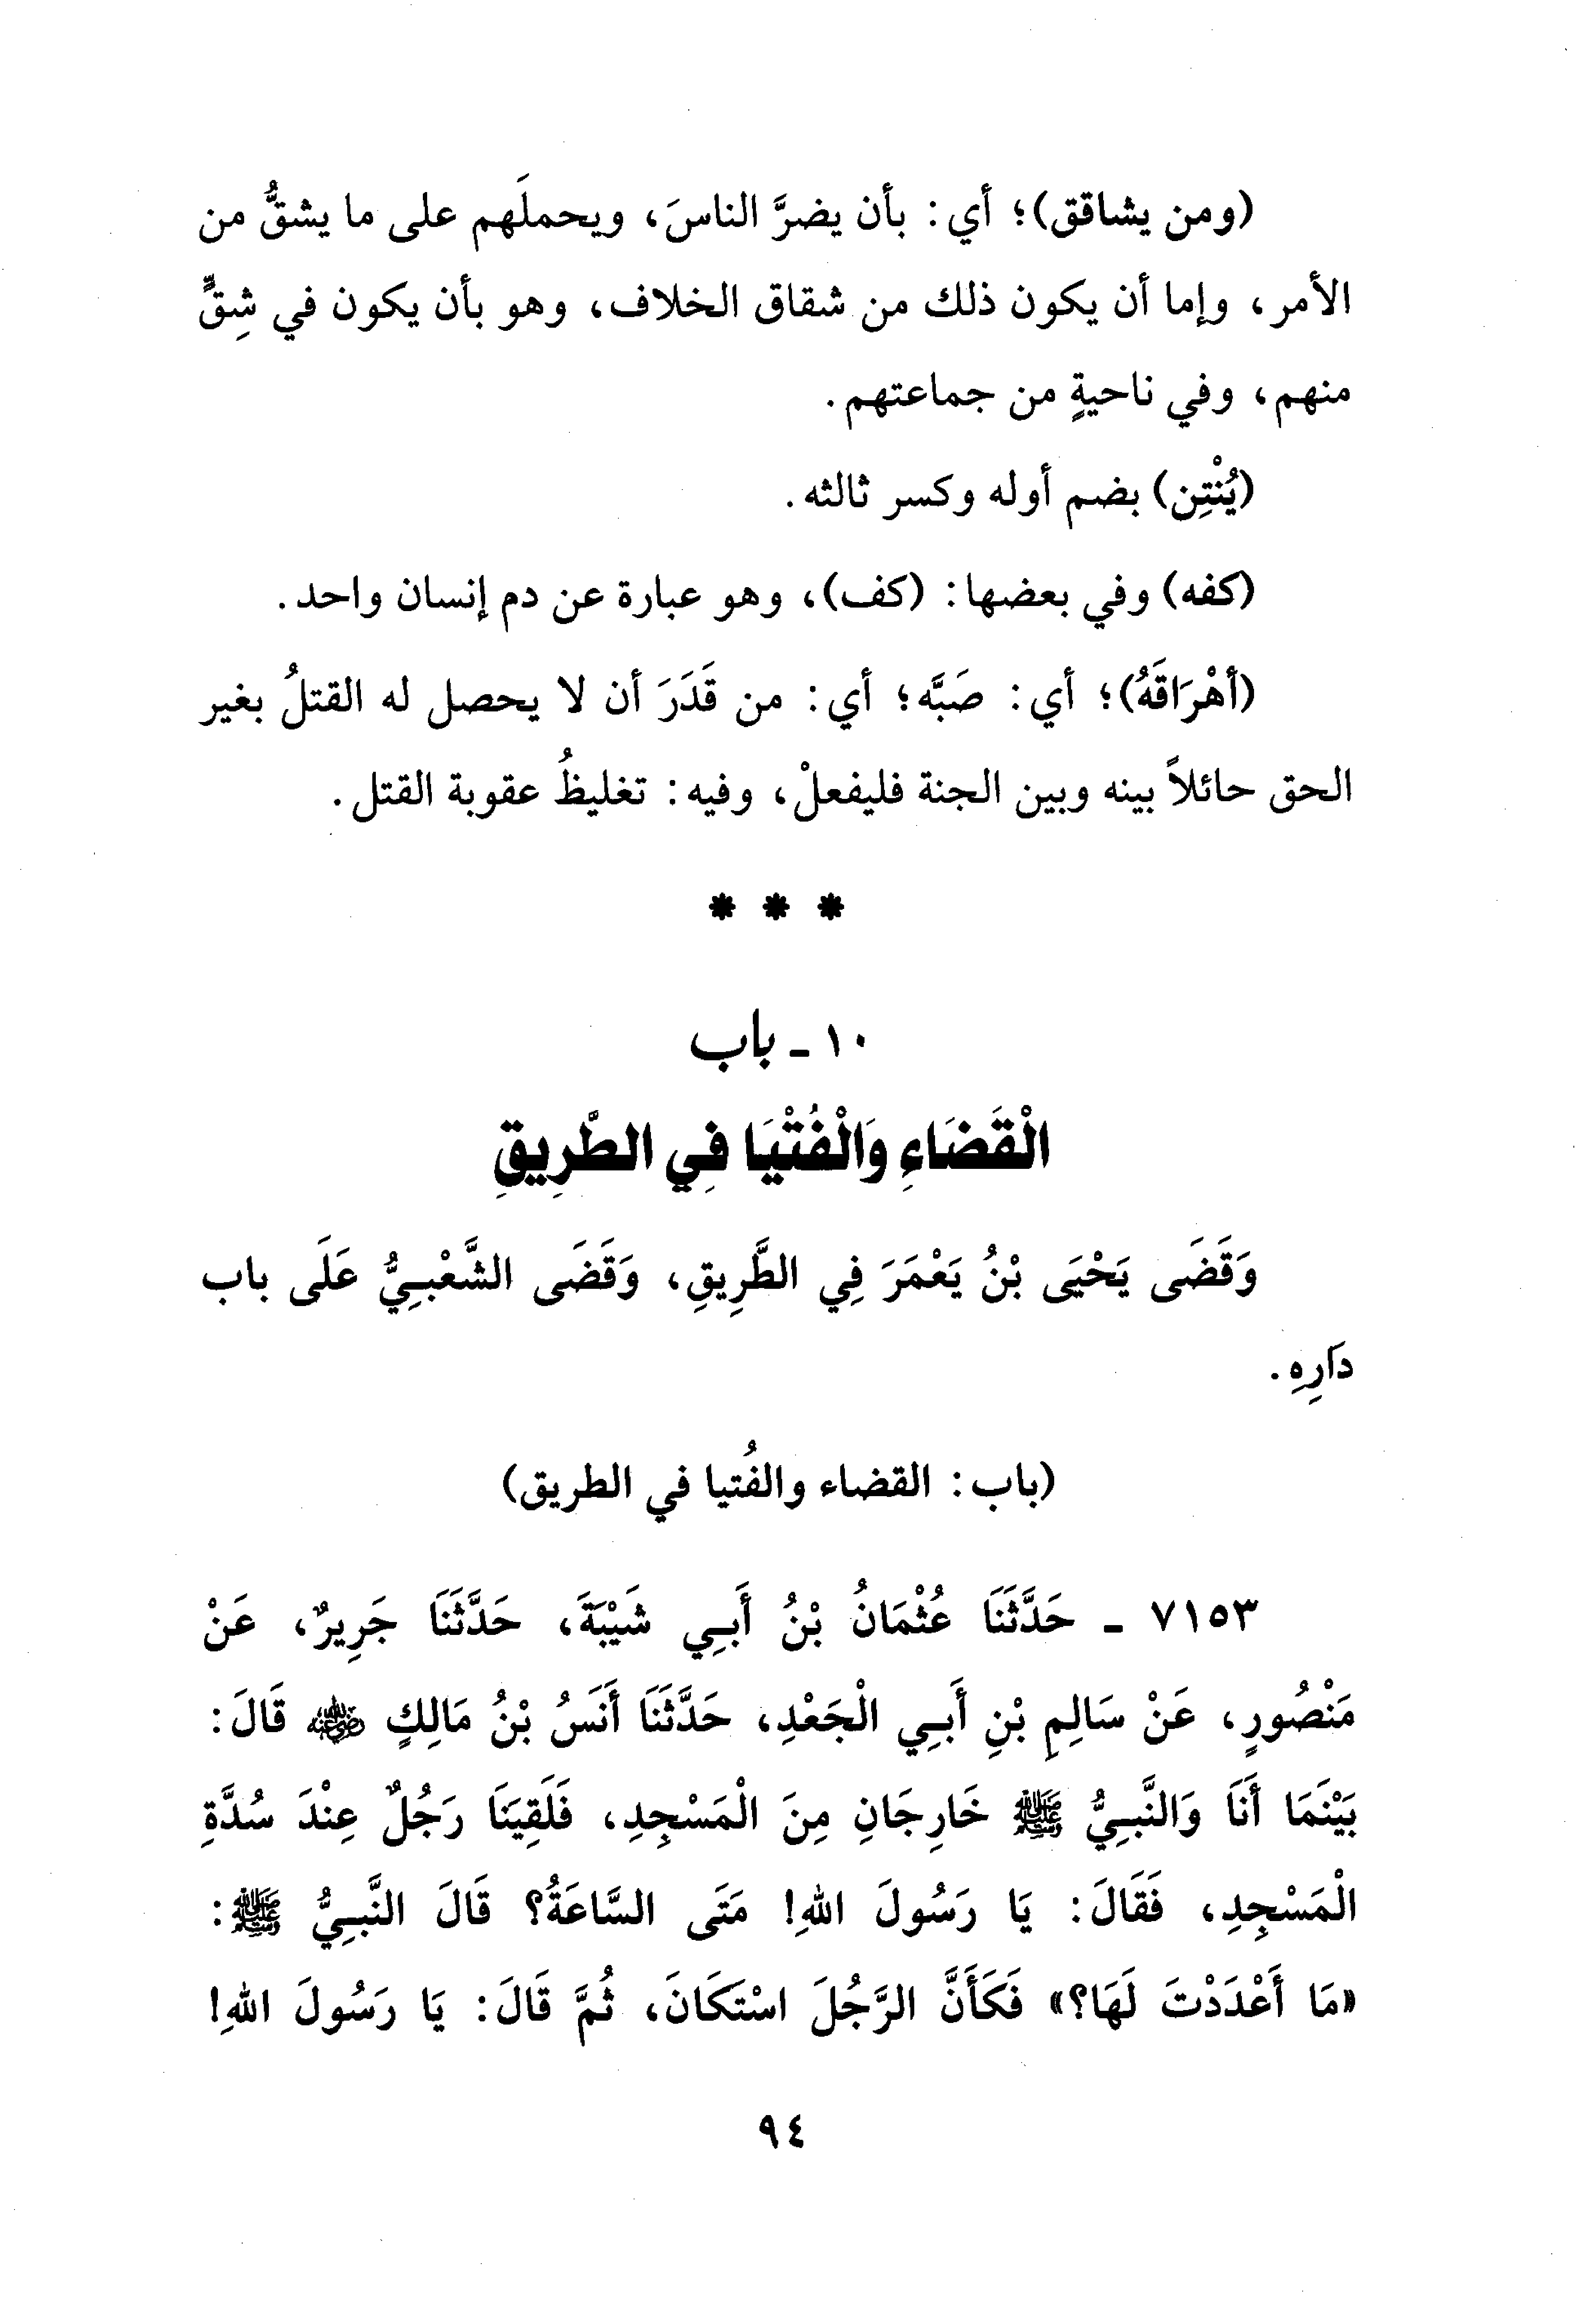 (ومن يشاقق)؛ أي: بأن يضرَّ الناسَ، ويحملَهم على ما يشقُّ من
الأمر، وإما أن يكون ذلك من شقاق الخلاف، وهو بأن يكون في شِقٍّ
منهم، وفي ناحيةٍ من جماعتهم.
(يُنْتِن) بضم أوله وكسر ثالثه.
(كفه) وفي بعضها: (كف)، وهو عبارة عن دم إنسان واحد.
(أهْرَاقَهُ)؛ أي: صَبَّه؛ أي: من قَدَرَ أن لا يحصل له القتلُ بغير
الحق حائلاً بينه وبين الجنة فليفعلْ، وفيه: تغليظُ عقوبة القتل.
* * *
١٠ - باب
الْقَضَاءِ وَالْفُتْيَا فِي الطَّرِيقِ
وَقَضَى يَحْيَى بْنُ يَعْمَرَ فِي الطَّرِيقِ، وَقَضَى الشَّعْبِيُّ عَلَى باب
دَارِهِ.
(باب: القضاء والفُتيا في الطريق)
٧١٥٣ - حَدَّثَنَا عُثْمَانُ بْنُ أَبِي شَيْبَةَ، حَدَّثَنَا جَرِيرٌ، عَنْ
مَنْصُورٍ، عَنْ سَالِمِ بْنِ أَبِي الْجَعْدِ، حَدَّثَنَا أَنَسُ بْنُ مَالِكٍ رضي الله عنه قَالَ:
بَيْنَمَا أَنَا وَالنَّبِيُّ ﷺ خَارِجَانِ مِنَ الْمَسْجِدِ، فَلَقِيَنَا رَجُلٌ عِنْدَ سُدَّةِ
الْمَسْجِدِ، فَقَالَ: يَا رَسُولَ اللهِ! مَتَى السَّاعَةُ؟ قَالَ النَّبِيُّ ﷺ:
«مَا أَعْدَدْتَ لَهَا؟» فَكَأَنَّ الرَّجُلَ اسْتَكَانَ، ثُمَّ قَالَ: يَا رَسُولَ اللهِ!
٩٤